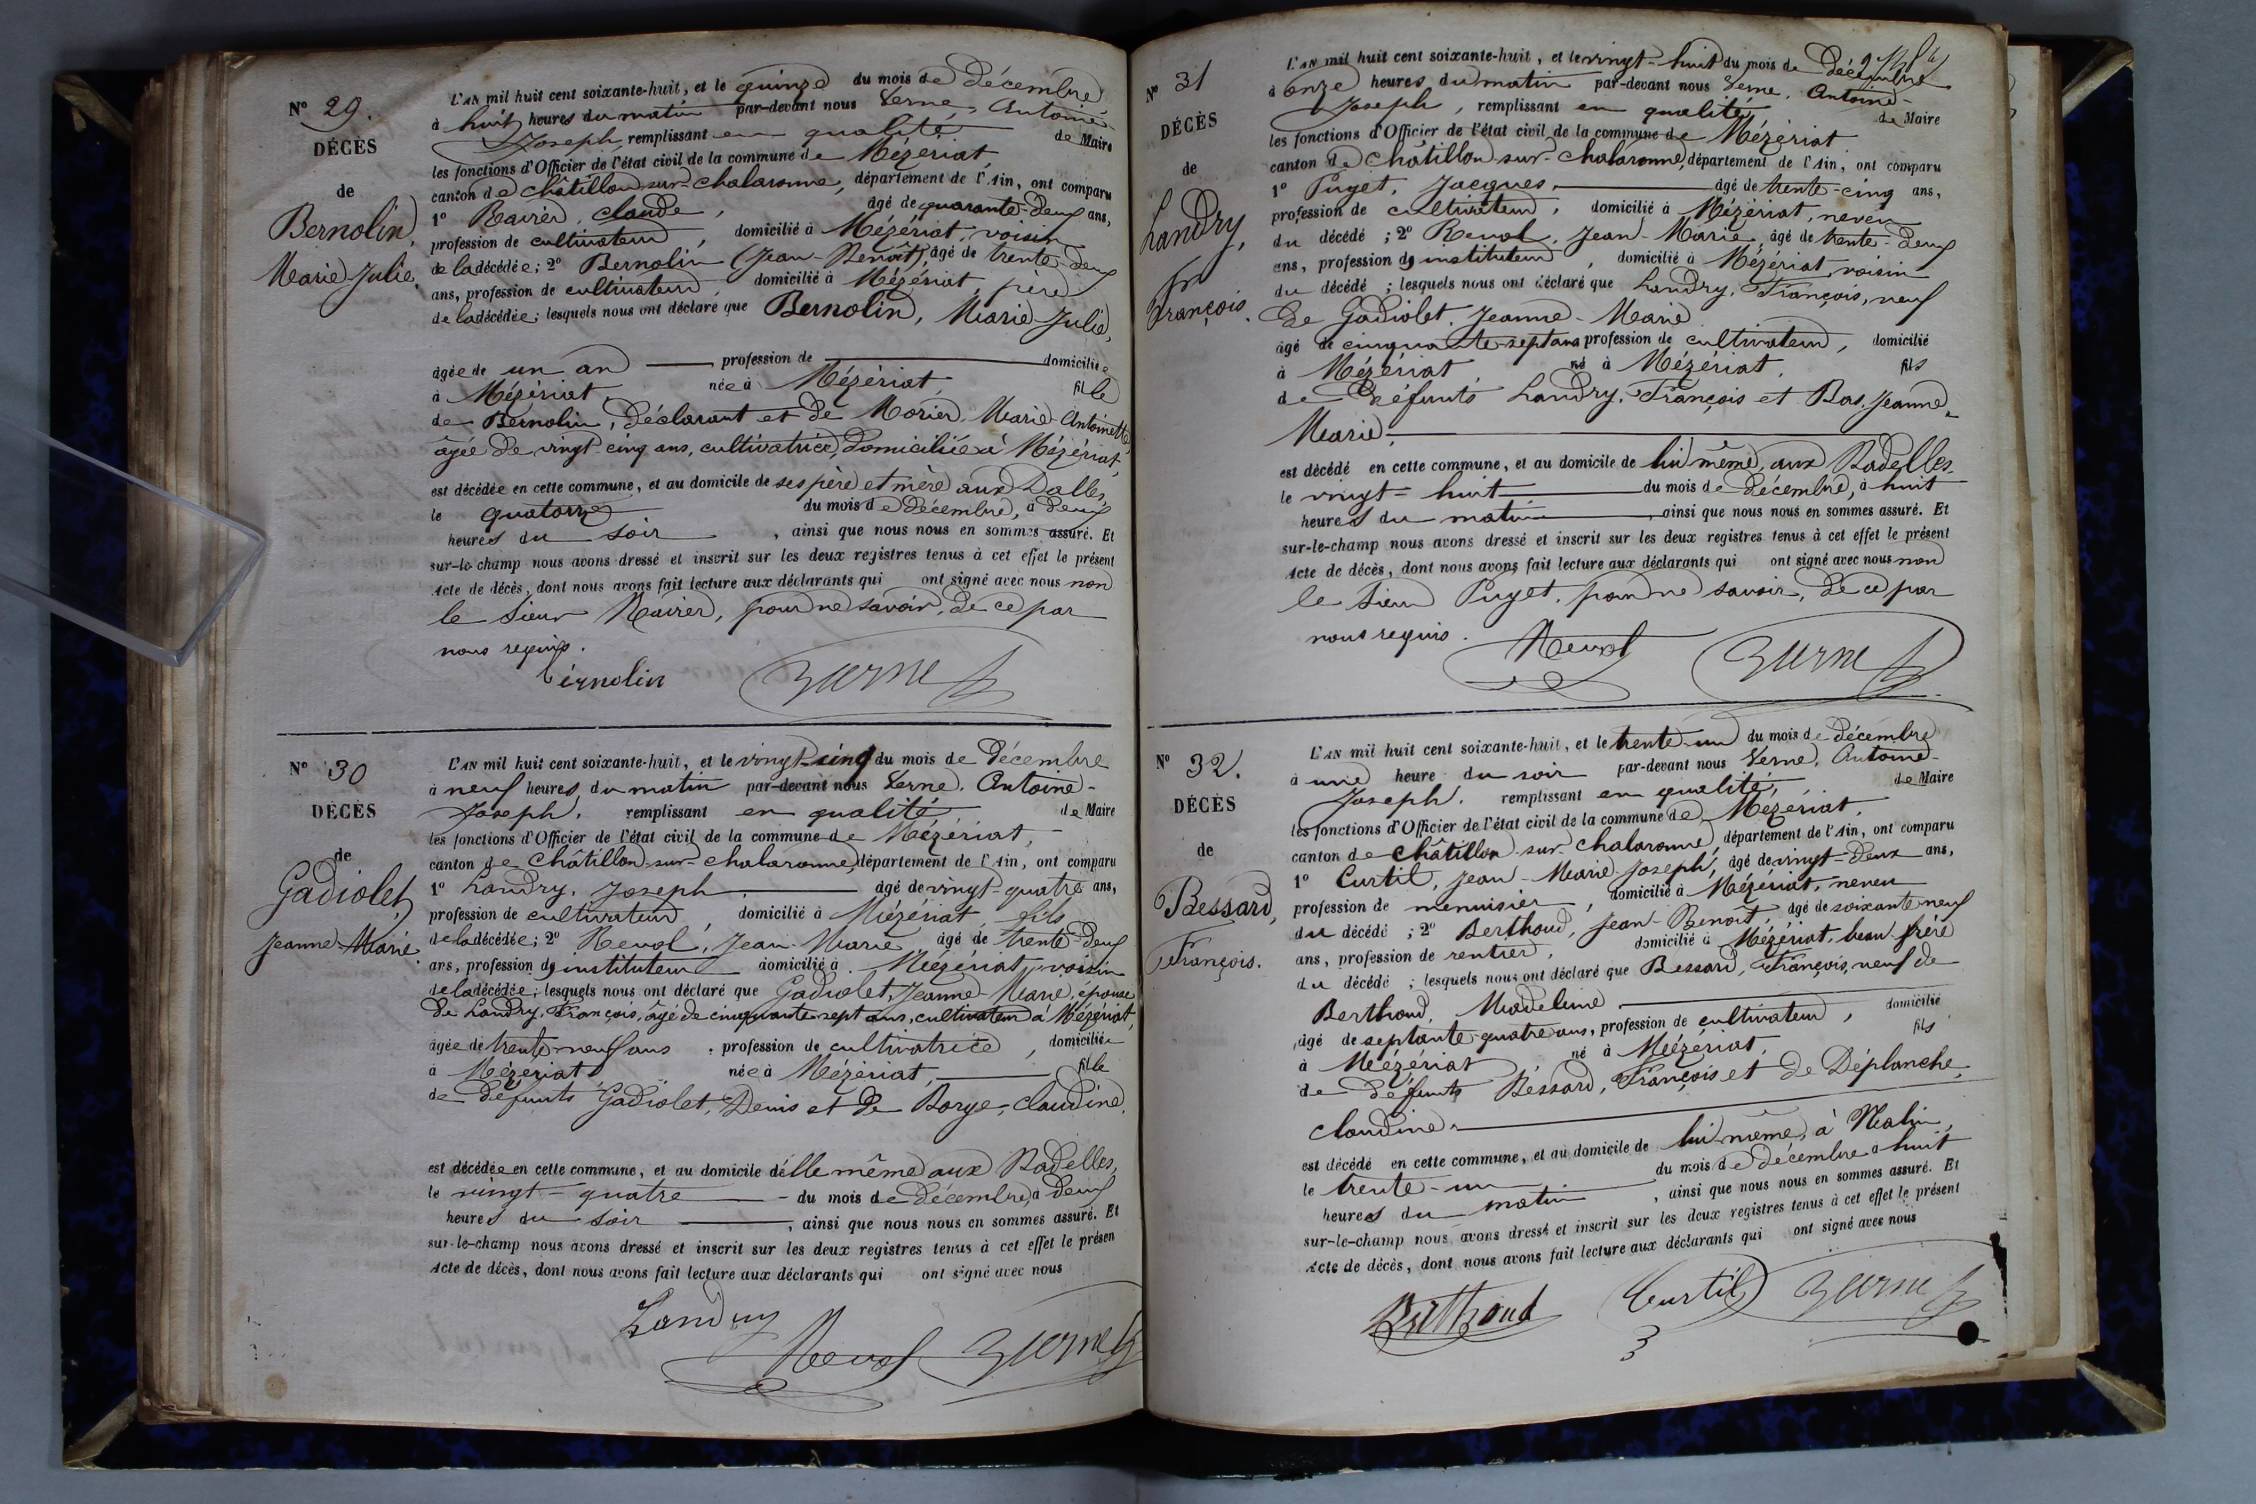 Nº 29.
DÉCÈS
de
Bernolin,
Marie-Julie.
L'AN mil huit cent soixante-huit, et le quinze du mois de Décembre
à huit heures du matin par-devant nous Verne, Antoine-
Joseph, remplissant en qualité de Maire
les fonctions d'Officier de l'état civil de la commune de Mézériat,
canton de Châtillon-sur-Chalaronne, département de l'Ain, ont comparu
1º claude, âgé de quarante-deux ans,
profession de cultivateur, domicilié à Mézériat, voisin
de la décédée; 2º Bernolin (Jean-Benoît), âgé de trente-deux
ans, profession de cultivateur, domicilié à Mézériat, père
de la décédée; lesquels nous ont déclaré que Bernolin, Marie-Julie,
âgée de un an profession de domiciliée
à Mézériat, née à Mézériat fille
de Bernolin, déclarant et de Morier, Marie-Antoinette,
âgée de vingt-cinq ans, cultivatrice, domiciliée à Mézériat,
est décédée en cette commune, et au domicile de ses père et mère aux Dalles,
le quatorze du mois de décembre, à deux
heures du soir, ainsi que nous nous en sommes assuré. Et
sur-le-champ nous avons dressé et inscrit sur les deux registres tenus à cet effet le présent
Acte de décès, dont nous avons fait lecture aux déclarants qui ont signé avec nous non
le sieur, pour ne savoir, de ce par
nous requis.
Bernolin Verne
Nº 30
DÉCÈS
de
Gadiolet,
Jeanne-Marie.
L'AN mil huit cent soixante-huit, et le vingt-cinq du mois de Décembre
à neuf heures du matin par-devant nous Verne, Antoine-
Joseph, remplissant en qualité de Maire
les fonctions d'Officier de l'état civil de la commune de Mézériat,
canton de Châtillon-sur-Chalaronne, département de l'Ain, ont comparu
1º Landry, Joseph, âgé de vingt-quatre ans,
profession de cultivateur, domicilié à Mézériat, fils
de la décédée; 2º Revol, Jean-Marie, âgé de trente-deux
ans, profession d'instituteur domicilié à Mézériat, voisin
de la décédée; lesquels nous ont déclaré que Gadiolet, Jeanne-Marie, épouse
de Landry, François, âgé de cinquante-sept ans, cultivateur à Mézériat,
âgée de trente-neuf ans, profession de cultivatrice, domiciliée
à Mézériat née à Mézériat, fille
de défunts Gadiolet, Denis et de Borge, Claudine,
est décédée en cette commune, et au domicile d'elle même aux Radelles,
le vingt-quatre du mois de décembre, à deux
heures du soir, ainsi que nous nous en sommes assuré. Et
sur-le-champ nous avons dressé et inscrit sur les deux registres tenus à cet effet le présen
Acte de décès, dont nous avons fait lecture aux déclarants qui ont signé avec nous
Landry
Revol Verne
Nº 31
DÉCÈS
de
Landry,
Fr
François.
L'AN mil huit cent soixante-huit, et le vingt-huit du mois de Décembre
à onze heures du matin par-devant nous Verne, Antoine-
Joseph, remplissant en qualité de Maire
les fonctions d'Officier de l'état civil de la commune de Mézériat
canton de Châtillon-sur-Chalaronne, département de l'Ain, ont comparu
1º Puget, Jacques, âgé de trente-cinq ans,
profession de cultivateur, domicilié à Mézériat, neveu
du décédé; 2º Revol, Jean-Marie, âgé de trente-deux
ans, profession d'instituteur, domicilié à Mézériat, voisin
du décédé; lesquels nous ont déclaré que Landry, François, veuf
de Gadiolet, Jeanne-Marie
âgé de cinquante-sept ans profession de cultivateur, domicilié
à Mézériat né à Mézériat, fils
de défunts Landry, François et Bas, Jeanne-
Marie,
est décédé en cette commune, et au domicile de lui même, aux Radelles
le vingt-huit du mois de décembre, à huit
heures du matin, ainsi que nous nous en sommes assuré. Et
sur-le-champ nous avons dressé et inscrit sur les deux registres tenus à cet effet le présent
Acte de décès, dont nous avons fait lecture aux déclarants qui ont signé avec nous non
le sieur Puget, pour ne savoir, de ce par
nous requis.
Revol Verne
Nº 32.
DÉCÈS
de
Bessard,
François.
L'AN mil huit cent soixante-huit, et le trente-un du mois de décembre
à une heure du soir par-devant nous Verne, Antoine-
Joseph, remplissant en qualité, de Maire
les fonctions d'Officier de l'état civil de la commune de Mézériat,
canton de Châtillon-sur-Chalaronne, département de l'Ain, ont comparu
1º Curtil, Jean-Marie-Joseph, âgé de vingt-deux ans,
profession de menuisier, domicilié à Mézériat, neveu
du décédé; 2º Berthoud, Jean-Benoît, âgé de soixante-neuf
ans, profession de rentier, domicilié à Mézériat, beau-frère
du décédé; lesquels nous ont déclaré que Bessard, François, veuf de
Berthoud, Madeleine
âgé de septante-quatre ans, profession de cultivateur, domicilié
à Mézériat né à Mézériat, fils
de défunts Bessard, François et de Déplanche,
Claudine,
est décédé en cette commune, et au domicile de lui-même, à Malin,
le trente-un du mois de décembre à huit
heures du matin, ainsi que nous nous en sommes assuré. Et
sur-le-champ nous avons dressé et inscrit sur les deux registres tenus à cet effet le présent
Acte de décès, dont nous avons fait lecture aux déclarants qui ont signé avec nous
Berthoud Curtil Verne